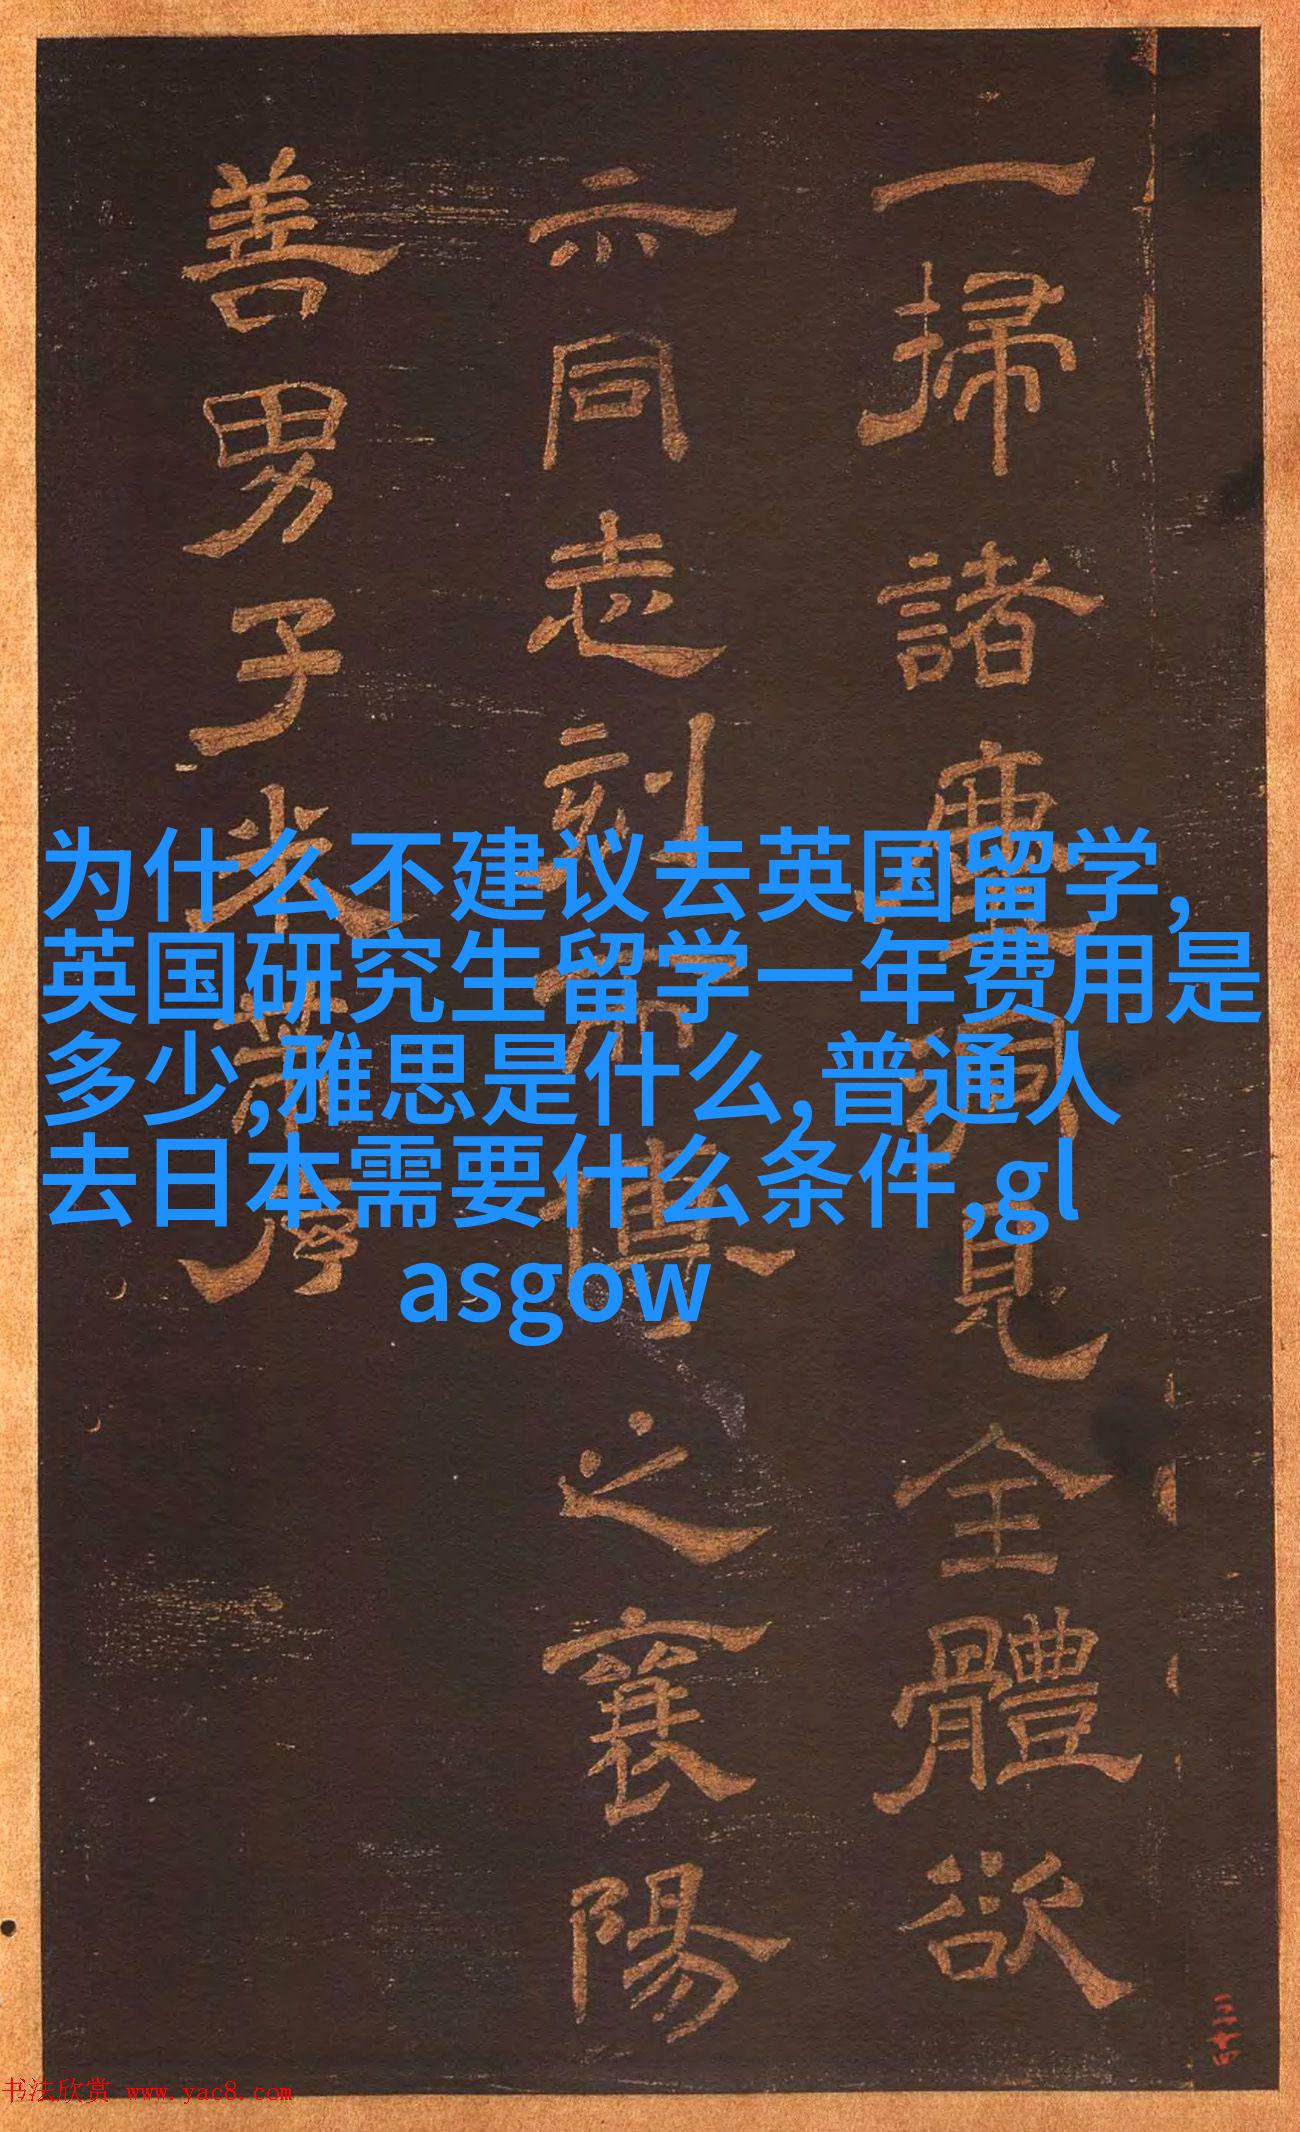 一掃諸塵洞見全體欲
示同志刻而傳之襄陽
善男子米芾書
为什么不建议去英国留学,
英国研究生留学一年费用是
多少,雅思是什么,普通人
去日本需要什么条件,gl
asgow
三十四
书法欣赏 www.yac8.com